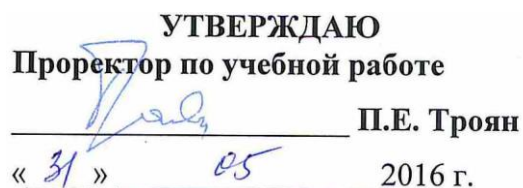 УТВЕРЖДАЮ
Проректор по учебной работе
П.Е. Троян
« 31 » 05 2016 г.